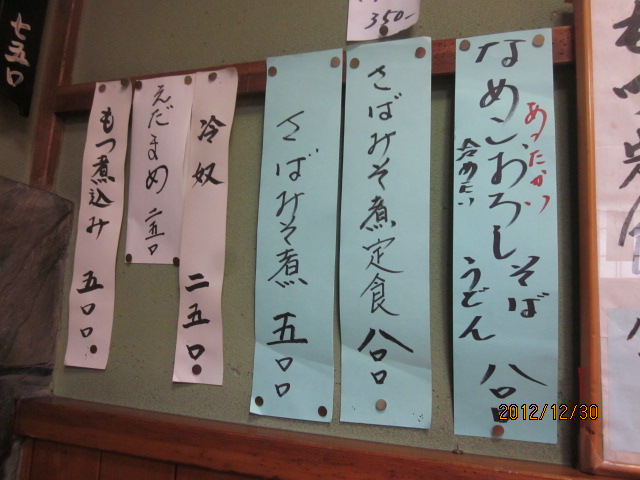 350-
なめこおろしそば
うどん
八〇〇
あったかい
冷めたい
さばみそ煮定食 八〇〇
さばみそ煮 五〇〇
冷奴 二五〇
えだまめ 二五〇
もつ煮込み 五〇〇
七五〇
2012/12/30